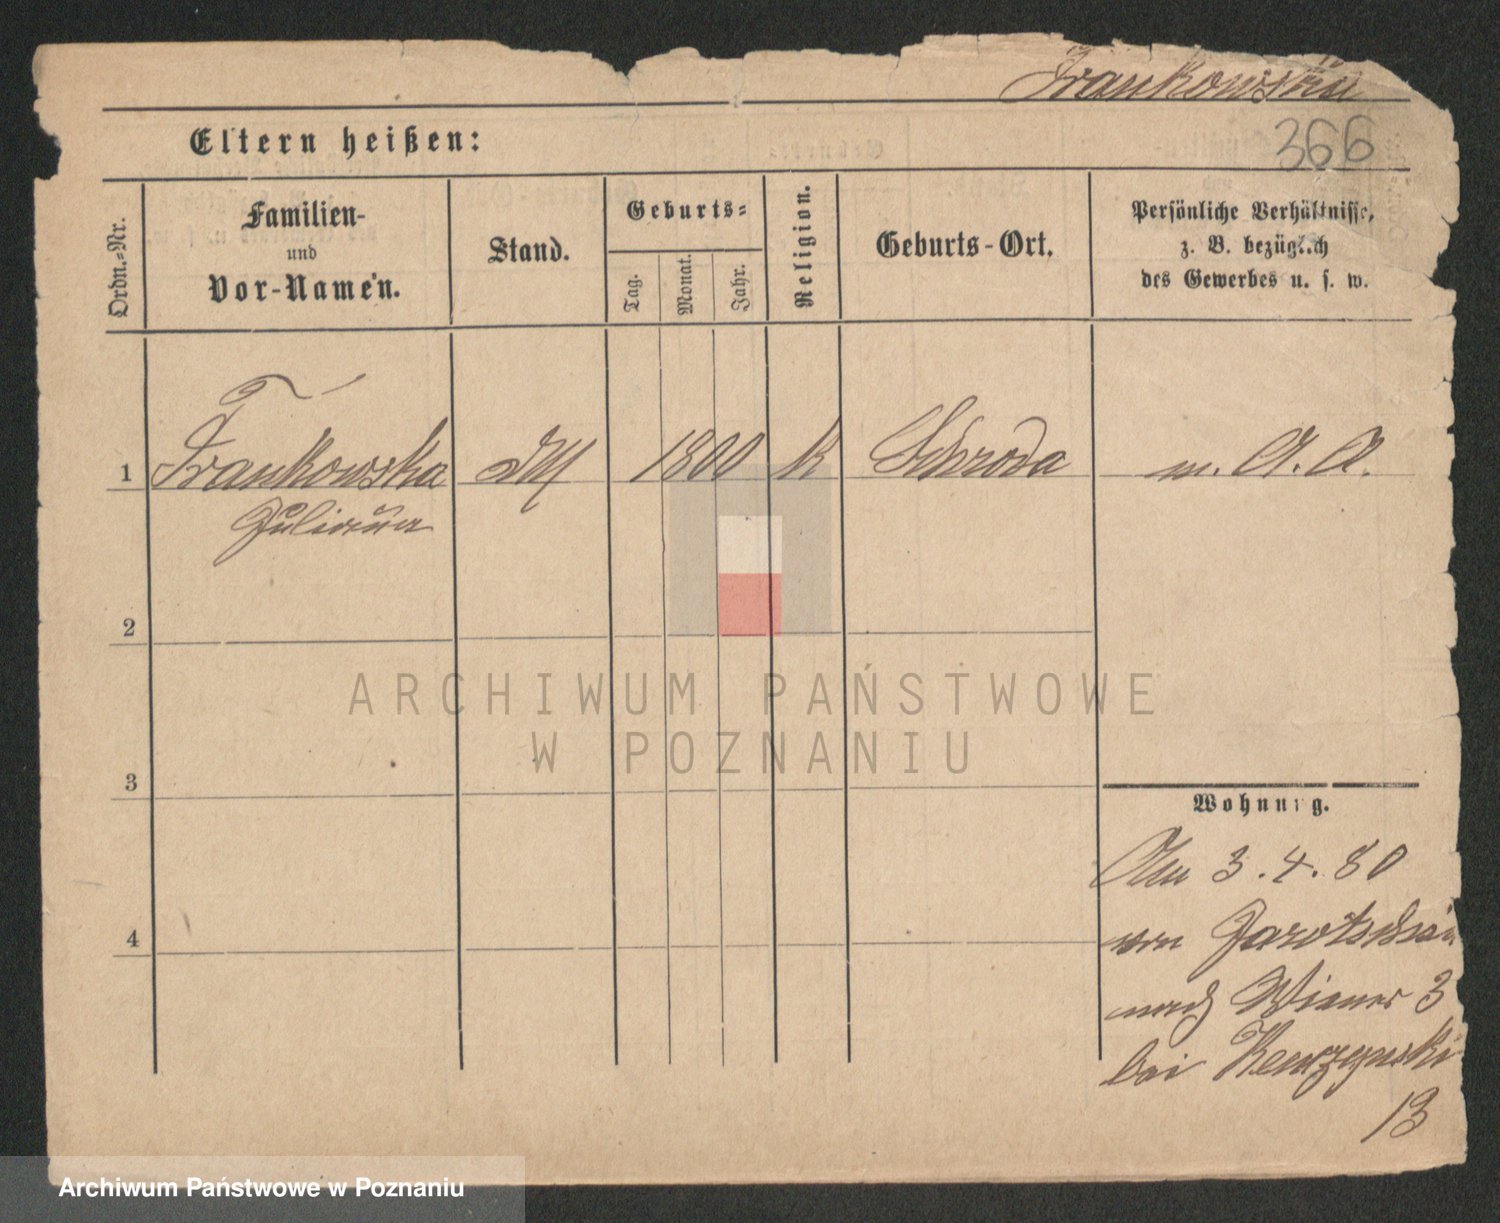 Frankowska
366
Eltern heißen:
Ordn.-Nr.
Familien-
und
Vor-Namen.
Stand.
Geburts-
Tag.
Monat.
Jahr.
Religion.
Geburts-Ort.
Persönliche Verhältnisse,
z. B. bezüglich
des Gewerbes u. s. w.
1 Frankowska 1800 k Schroda m. A. A.
Julianna
2
3
4
Wohnung.
Am 3.4.80
von Jarotschin
nach Wiener 3
bei
13
ARCHIWUM PAŃSTWOWE
W POZNANIU
Archiwum Państwowe w Poznaniu